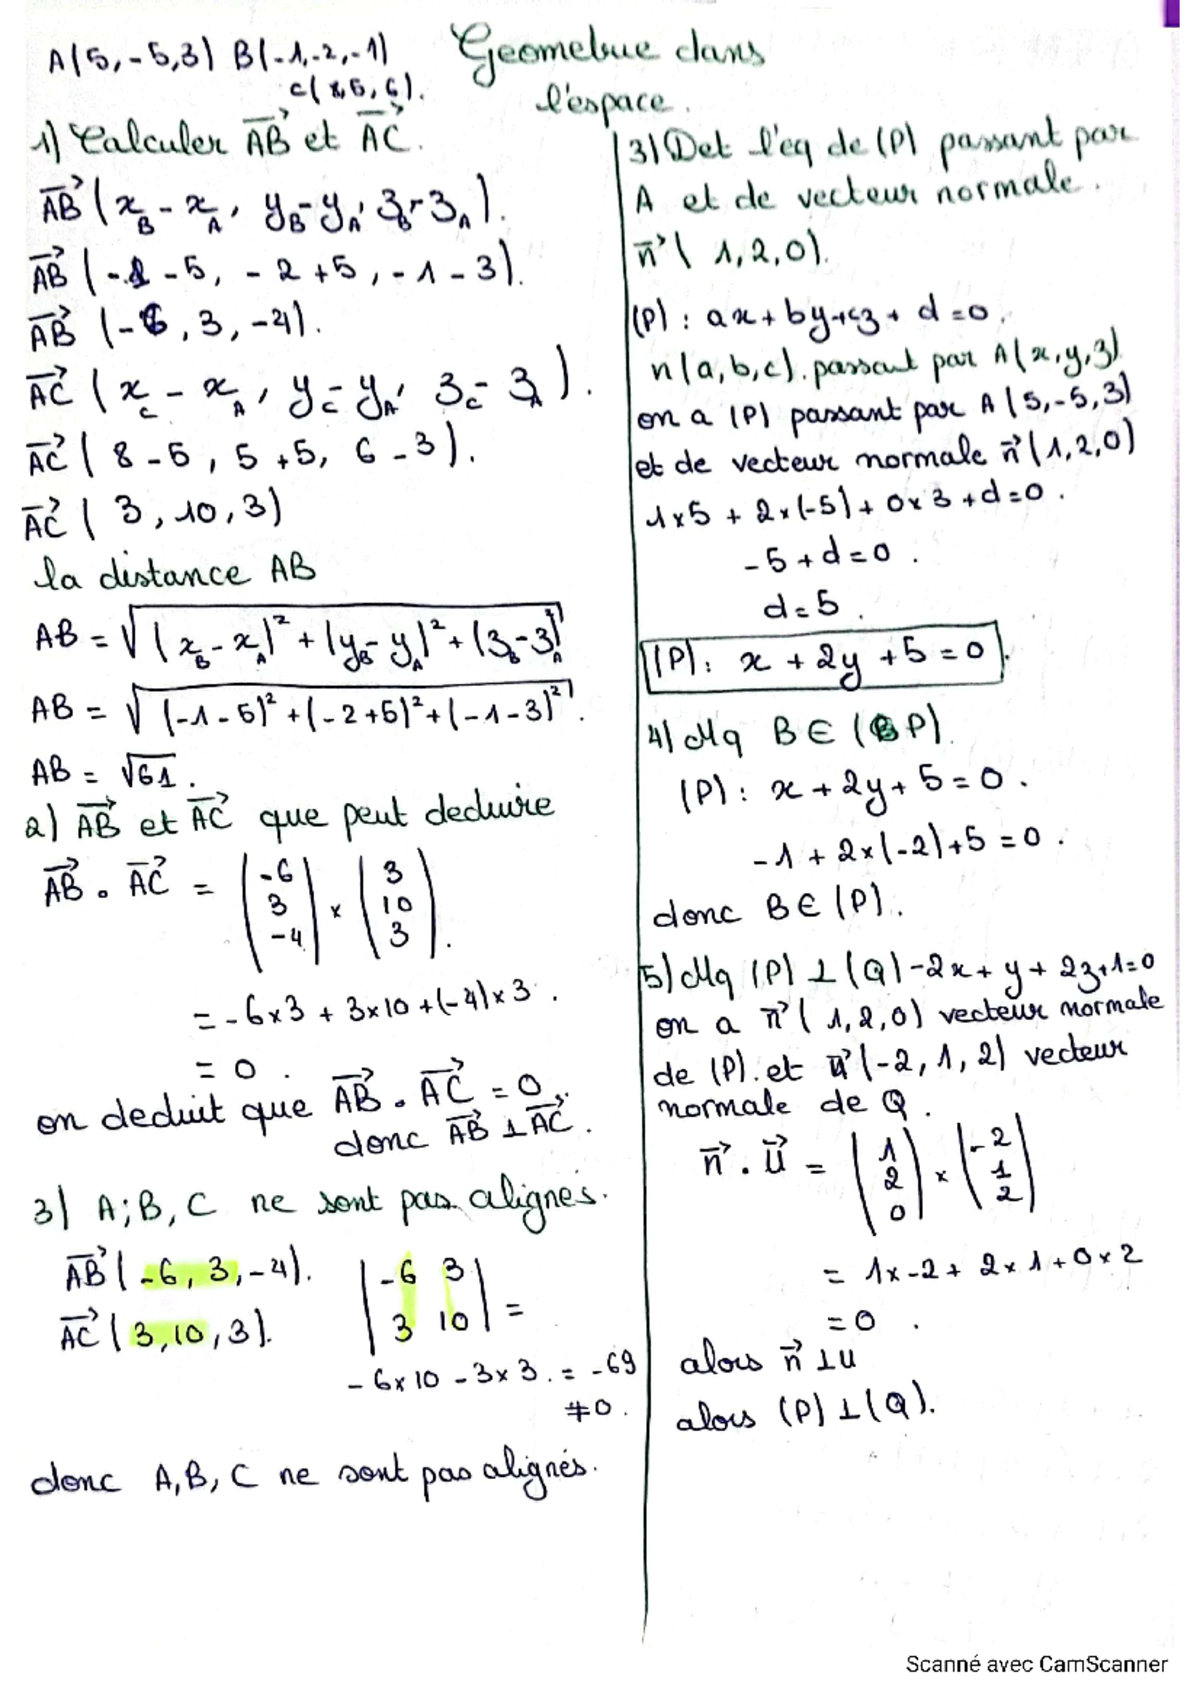 Geometrie dans
l'espace.
A(5,-5,3) B(-1,-2,-1)
C(8,5,6).
1) Calculer AB⃗ et AC⃗.
AB⃗ (x_B - x_A, y_B - y_A, z_B - z_A).
AB⃗ (-1 - 5, -2 + 5, -1 - 3).
AB⃗ (-6, 3, -4).
AC⃗ (x_C - x_A, y_C - y_A, z_C - z_A).
AC⃗ (8 - 5, 5 + 5, 6 - 3).
AC⃗ (3, 10, 3)
la distance AB
AB = √((x_B - x_A)² + (y_B - y_A)² + (z_B - z_A)²)
AB = √((-1 - 5)² + (-2 + 5)² + (-1 - 3)²).
AB = √61.
2) AB⃗ et AC⃗ que peut deduire
AB⃗ . AC⃗ = (-6 3 -4) × (3 10 3).
= -6×3 + 3×10 + (-4)×3.
= 0.
on deduit que AB⃗ . AC⃗ = 0.
donc AB⃗ ⊥ AC⃗.
3) A; B, C ne sont pas alignés.
AB⃗ (-6, 3, -4). |-6 3|
AC⃗ (3, 10, 3). |3 10| =
-6×10 - 3×3. = -69
≠0.
donc A, B, C ne sont pas alignés.
3) Det l'eq de (P) passant par
A et de vecteur normale.
n⃗ (1, 2, 0).
(P) : ax + by + cz + d = 0.
n(a, b, c). passant par A(x, y, z)
on a (P) passant par A(5, -5, 3)
et de vecteur normale n⃗ (1, 2, 0)
1×5 + 2×(-5) + 0×3 + d = 0.
-5 + d = 0.
d = 5.
(P) : x + 2y + 5 = 0.
4) Mq B ∈ (P).
(P) : x + 2y + 5 = 0.
-1 + 2×(-2) + 5 = 0.
donc B ∈ (P).
5) Mq (P) ⊥ (Q) -2x + y + 2z + 1 = 0
on a n⃗ (1, 2, 0) vecteur normale
de (P). et u⃗ (-2, 1, 2) vecteur
normale de Q.
n⃗ . u⃗ = (1 2 0) × (-2 1 2)
= 1×-2 + 2×1 + 0×2
= 0.
alors n⃗ ⊥ u
alors (P) ⊥ (Q).
Scanné avec CamScanner